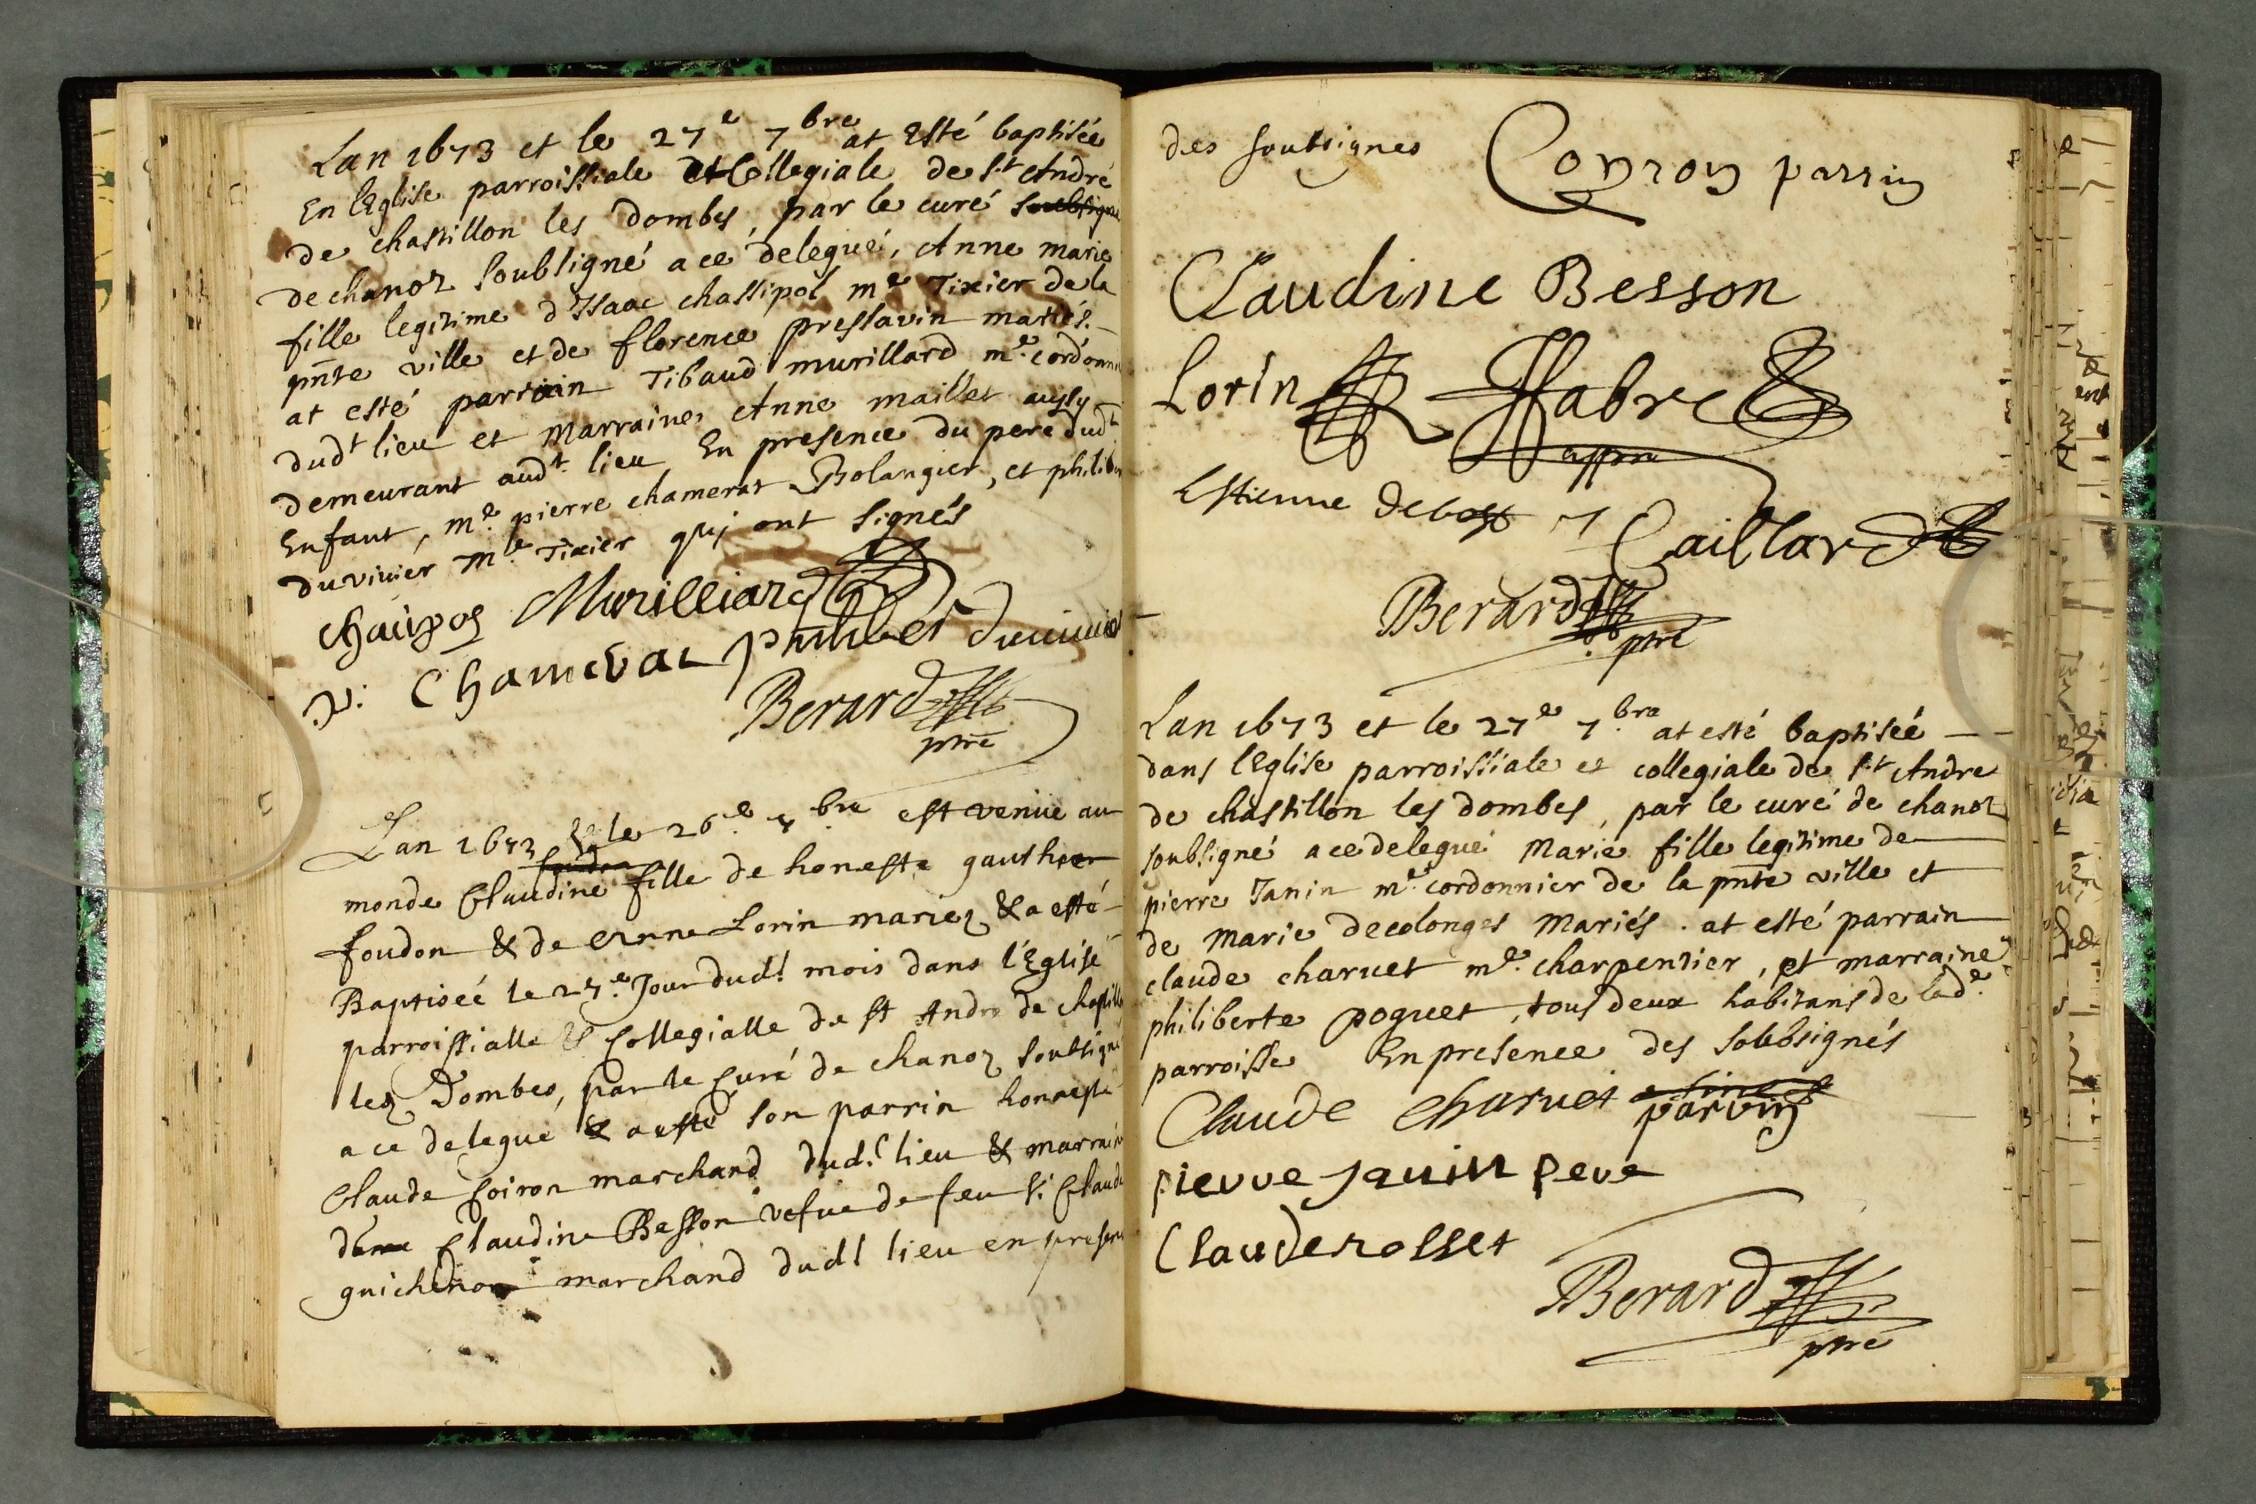 Lan 1673 et le 27e 7bre at Esté baptisée
En lEglise parroissiale et Collegiale de St André
de chastillon les dombes, par le curé soubsigné
de chanoz soubsigné a ce delegué, Anne marie
fille legitime d'Isaac chassipol me Tixier de la
pnte ville et de florence pressavin mariés.
at esté parrain Tibaud murillard me. cordonn
dudt lieu et marraine, Anne maillet aussy
demeurant audt. lieu En presence du pere dudt
Enfant, me. pierre chamerat Bolangier, et philib
duvivier me Tixier qui ont signés
Murilliard
p. Chamerat philibert duvivier
Berard
ptre
Lan 1673 & le 26e. 7bre est venue au
monde Claudine fille de honeste gauthier
foudon & de Anne Lorin mariez & a esté
Baptiseé le 27e. Jour dudt mois dans l'Eglise
parroissialle & Collegialle de st André de chastill
lez Dombes, par le Curé de chanoz soubsigné
a ce delegué & a esté son parrin honneste
Claude Coiron marchand dudt lieu & marrain
dame Claudine Besson vefue de feu sr Claude
guichenon marchand dudt lieu en presen
des soubsignes Conron parrin
Claudine Besson
Lorin Ffabre
Estienne Debost Caillard
Berard
ptre
Lan 1673 et le 27e 7.bre at esté baptisée
dans lEglise parroissiale et collegiale de St Andre
de chastillon les dombes, par le curé de chanoz
soubsigné a ce delegué Marie fille legitime de
pierre Janin me. cordonnier de la pnte ville et
de Marie decolonges Mariés. at esté parrain
claude charuet me. charpentier, et marraine
philiberte poguet, tous deux habitans de lade.
parroisse En presence des soubsignés
Claude Charuet parrin
pierre janin pere
Claude rosset
Berard
ptre